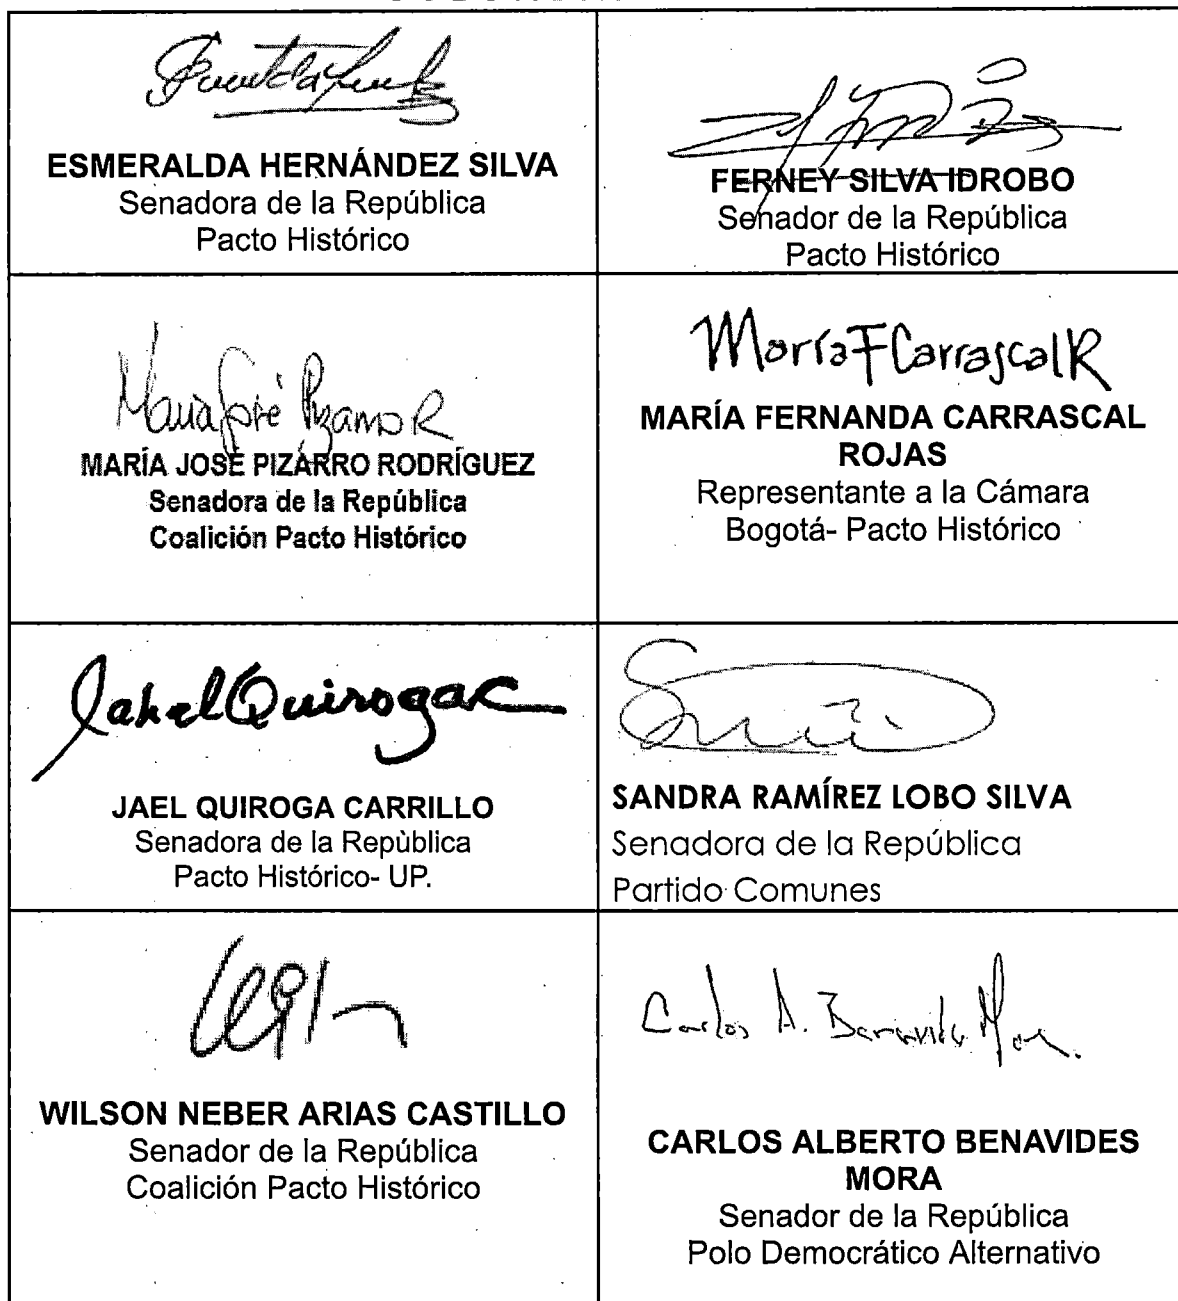 ESMERALDA HERNÁNDEZ SILVA
Senadora de la República
Pacto Histórico
FERNEY SILVA IDROBO
Senador de la República
Pacto Histórico
María José Pizarro R
MARÍA JOSÉ PIZARRO RODRÍGUEZ
Senadora de la República
Coalición Pacto Histórico
María F Carrascal R
MARÍA FERNANDA CARRASCAL
ROJAS
Representante a la Cámara
Bogotá- Pacto Histórico
Jahel Quiroga C
JAEL QUIROGA CARRILLO
Senadora de la Repùblica
Pacto Histórico- UP.
SANDRA RAMÍREZ LOBO SILVA
Senadora de la República
Partido Comunes
WILSON NEBER ARIAS CASTILLO
Senador de la República
Coalición Pacto Histórico
Carlos A. Benavides Mora.
CARLOS ALBERTO BENAVIDES
MORA
Senador de la República
Polo Democrático Alternativo